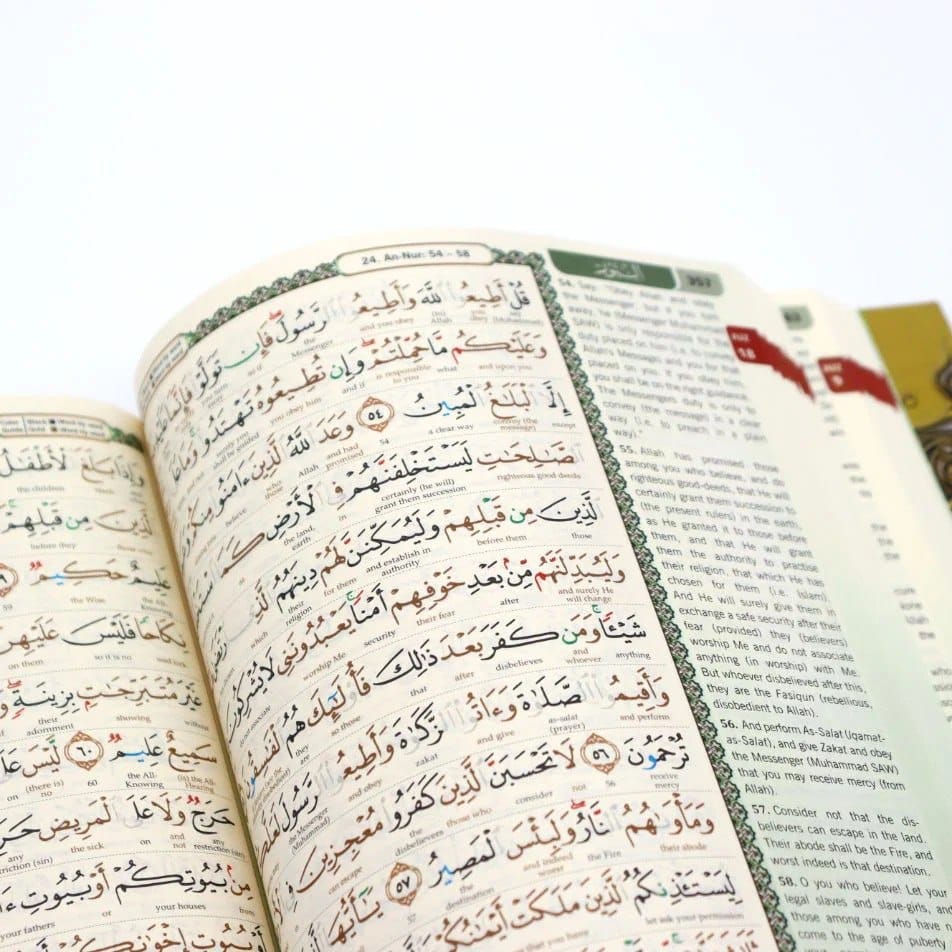 24. An-Nur: 54 - 58
قُلْ أَطِيعُوا اللَّهَ وَأَطِيعُوا الرَّسُولَ فَإِن تَوَلَّوْا فَإِنَّمَا
(Muhammad) say you obey Allah and you obey the Messenger so if
وَعَلَيْكُم مَّا حُمِّلْتُمْ وَإِن تُطِيعُوهُ تَهْتَدُوا وَمَا عَلَى
and upon you what is responsible to you and if you obey him surely you shall be guided
إِلَّا الْبَلَاغُ الْمُبِينُ ٥٤ وَعَدَ اللَّهُ الَّذِينَ ءَامَنُوا مِنكُمْ
except convey (the message) a clear way 54 and had promised Allah those who believe
الصَّالِحَاتِ لَيَسْتَخْلِفَنَّهُمْ فِي الْأَرْضِ كَمَا
righteous good deeds certainly (he will) grant them succession in the land, earth as
الَّذِينَ مِن قَبْلِهِمْ وَلَيُمَكِّنَنَّ لَهُمْ دِينَهُمُ الَّذِي
those before them and establish in authority for them their religion which
وَلَيُبَدِّلَنَّهُم مِّن بَعْدِ خَوْفِهِمْ أَمْنًا يَعْبُدُونَنِي لَا يُشْرِكُونَ
and surely He will change after their fear security worship Me do not associate
شَيْئًا وَمَن كَفَرَ بَعْدَ ذَٰلِكَ فَأُولَٰئِكَ هُمُ الْفَاسِقُونَ
anything and whoever disbelieves after that so those they are
وَأَقِيمُوا الصَّلَاةَ وَءَاتُوا الزَّكَاةَ وَأَطِيعُوا الرَّسُولَ لَعَلَّكُمْ
and perform as-salat (prayer) and give zakat and obey the Messenger (Muhammad)
تُرْحَمُونَ ٥٦ لَا تَحْسَبَنَّ الَّذِينَ كَفَرُوا مُعْجِزِينَ فِي
receive mercy 56 not consider those who disbelievers can escape
وَمَأْوَاهُمُ النَّارُ وَلَبِئْسَ الْمَصِيرُ ٥٧ يَا أَيُّهَا
their abode the Fire and indeed worst the destination 57
لِيَسْتَأْذِنكُمُ الَّذِينَ مَلَكَتْ أَيْمَانُكُمْ
let ask your permission that you have
النور
357
JUZ 18
JUZ 9
54. Say: "Obey Allah and obey
the Messenger, but if you turn
away, he (Messenger Muhammad
SAW) is only responsible for the
duty placed on him (i.e. to convey
Allah's Message) and you for that
placed on you. If you obey him,
you shall be on the right guidance.
The Messenger's duty is only to
convey (the message) in a clear
way (i.e. to preach in a plain
way)."
55. Allah has promised those
among you who believe, and do
righteous good-deeds, that He will
certainly grant them succession to
(the present rulers) in the earth,
as He granted it to those before
them, and that He will grant
them the authority to practise
their religion, that which He has
chosen for them (i.e. Islam).
And He will surely give them in
exchange a safe security after their
fear (provided) they (believers)
worship Me and do not associate
anything (in worship) with Me.
But whoever disbelieved after this,
they are the Fasiqun (rebellious,
disobedient to Allah).
56. And perform As-Salat (Iqamat-
as-Salat), and give Zakat and obey
the Messenger (Muhammad SAW)
that you may receive mercy (from
Allah).
57. Consider not that the dis-
believers can escape in the land.
Their abode shall be the Fire, and
worst indeed is that destination.
58. O you who believe! Let your
legal slaves and slave-girls, and
those among you who have not
come to the age of puberty
وَإِذَا بَلَغَ الْأَطْفَالُ
the children
الَّذِينَ مِن قَبْلِهِمْ
before they
عَلِيمٌ حَكِيمٌ ٥٩
the All-Knowing the Wise 59
نِكَاحًا فَلَيْسَ عَلَيْهِنَّ
wed lock so it is no on them
غَيْرَ مُتَبَرِّجَاتٍ بِزِينَةٍ
without showing their adornment
سَمِيعٌ عَلِيمٌ ٦٠ لَّيْسَ عَلَى
(is) the All-Hearing the All-Knowing 60 (there is) no on
حَرَجٌ وَلَا عَلَى الْمَرِيضِ حَرَجٌ
any restriction (sin) and not on the sick any restriction (sin)
مِن بُيُوتِكُمْ أَوْ بُيُوتِ
your houses or your fathers
أَوْ بُيُوتِ إِخْوَانِكُمْ